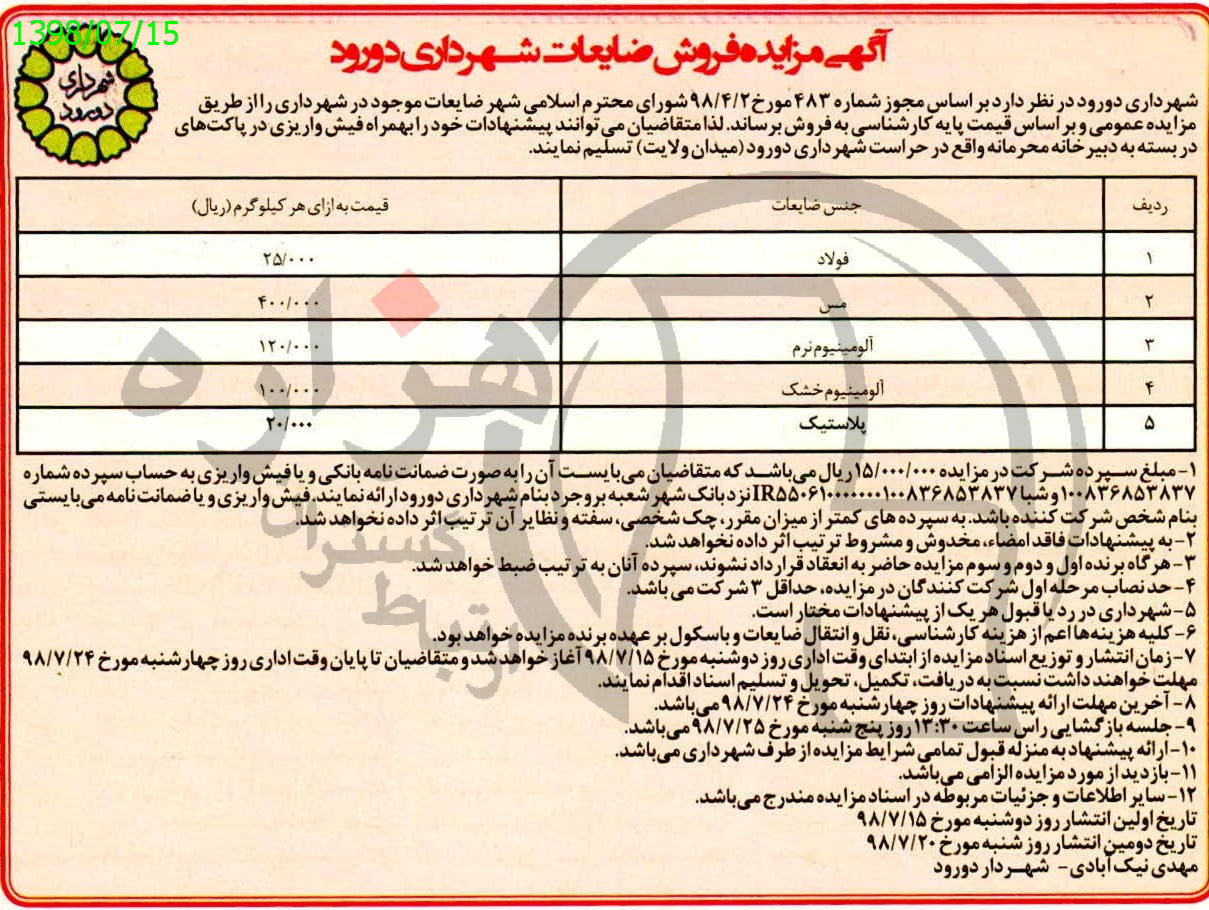 1398/07/15
آگهی مزایده فروش ضایعات شهرداری دورود
شهرداری دورود
شهرداری دورود در نظر دارد بر اساس مجوز شماره ۴۸۳ مورخ ۹۸/۴/۲ شورای محترم اسلامی شهر ضایعات موجود در شهرداری را از طریق
مزایده عمومی و بر اساس قیمت پایه کارشناسی به فروش برساند. لذا متقاضیان می توانند پیشنهادات خود را بهمراه فیش واریزی در پاکت های
در بسته به دبیرخانه محرمانه واقع در حراست شهرداری دورود (میدان ولایت) تسلیم نمایند.
ردیف جنس ضایعات قیمت به ازای هر کیلوگرم (ریال)
۱ فولاد ۲۵/۰۰۰
۲ مس ۴۰۰/۰۰۰
۳ آلومینیوم نرم ۱۲۰/۰۰۰
۴ آلومینیوم خشک ۱۰۰/۰۰۰
۵ پلاستیک ۲۰/۰۰۰
۱- مبلغ سپرده شرکت در مزایده ۱۵/۰۰۰/۰۰۰ ریال می باشد که متقاضیان می بایست آن را به صورت ضمانت نامه بانکی و یا فیش واریزی به حساب سپرده شماره
۱۰۰۸۳۶۸۵۳۸۳۷ و شبا IR۵۵۰۶۱۰۰۰۰۰۰۰۱۰۰۸۳۶۸۵۳۸۳۷ نزد بانک شهر شعبه بروجرد بنام شهرداری دورود ارائه نمایند. فیش واریزی و یا ضمانت نامه می بایستی
بنام شخص شرکت کننده باشد. به سپرده های کمتر از میزان مقرر، چک شخصی، سفته و نظایر آن ترتیب اثر داده نخواهد شد.
۲- به پیشنهادات فاقد امضاء، مخدوش و مشروط ترتیب اثر داده نخواهد شد.
۳- هرگاه برنده اول و دوم و سوم مزایده حاضر به انعقاد قرارداد نشوند، سپرده آنان به ترتیب ضبط خواهد شد.
۴- حد نصاب مرحله اول شرکت کنندگان در مزایده، حداقل ۳ شرکت می باشد.
۵- شهرداری در رد یا قبول هر یک از پیشنهادات مختار است.
۶- کلیه هزینه ها اعم از هزینه کارشناسی، نقل و انتقال ضایعات و باسکول بر عهده برنده مزایده خواهد بود.
۷- زمان انتشار و توزیع اسناد مزایده از ابتدای وقت اداری روز دوشنبه مورخ ۹۸/۷/۱۵ آغاز خواهد شد و متقاضیان تا پایان وقت اداری روز چهارشنبه مورخ ۹۸/۷/۲۴
مهلت خواهند داشت نسبت به دریافت، تکمیل، تحویل و تسلیم اسناد اقدام نمایند.
۸- آخرین مهلت ارائه پیشنهادات روز چهارشنبه مورخ ۹۸/۷/۲۴ می باشد.
۹- جلسه بازگشایی راس ساعت ۱۳:۳۰ روز پنج شنبه مورخ ۹۸/۷/۲۵ می باشد.
۱۰- ارائه پیشنهاد به منزله قبول تمامی شرایط مزایده از طرف شهرداری می باشد.
۱۱- بازدید از مورد مزایده الزامی می باشد.
۱۲- سایر اطلاعات و جزئیات مربوطه در اسناد مزایده مندرج می باشد.
تاریخ اولین انتشار روز دوشنبه مورخ ۹۸/۷/۱۵
تاریخ دومین انتشار روز شنبه مورخ ۹۸/۷/۲۰
مهدی نیک آبادی - شهردار دورود
هزاره
گستران
ارتباط